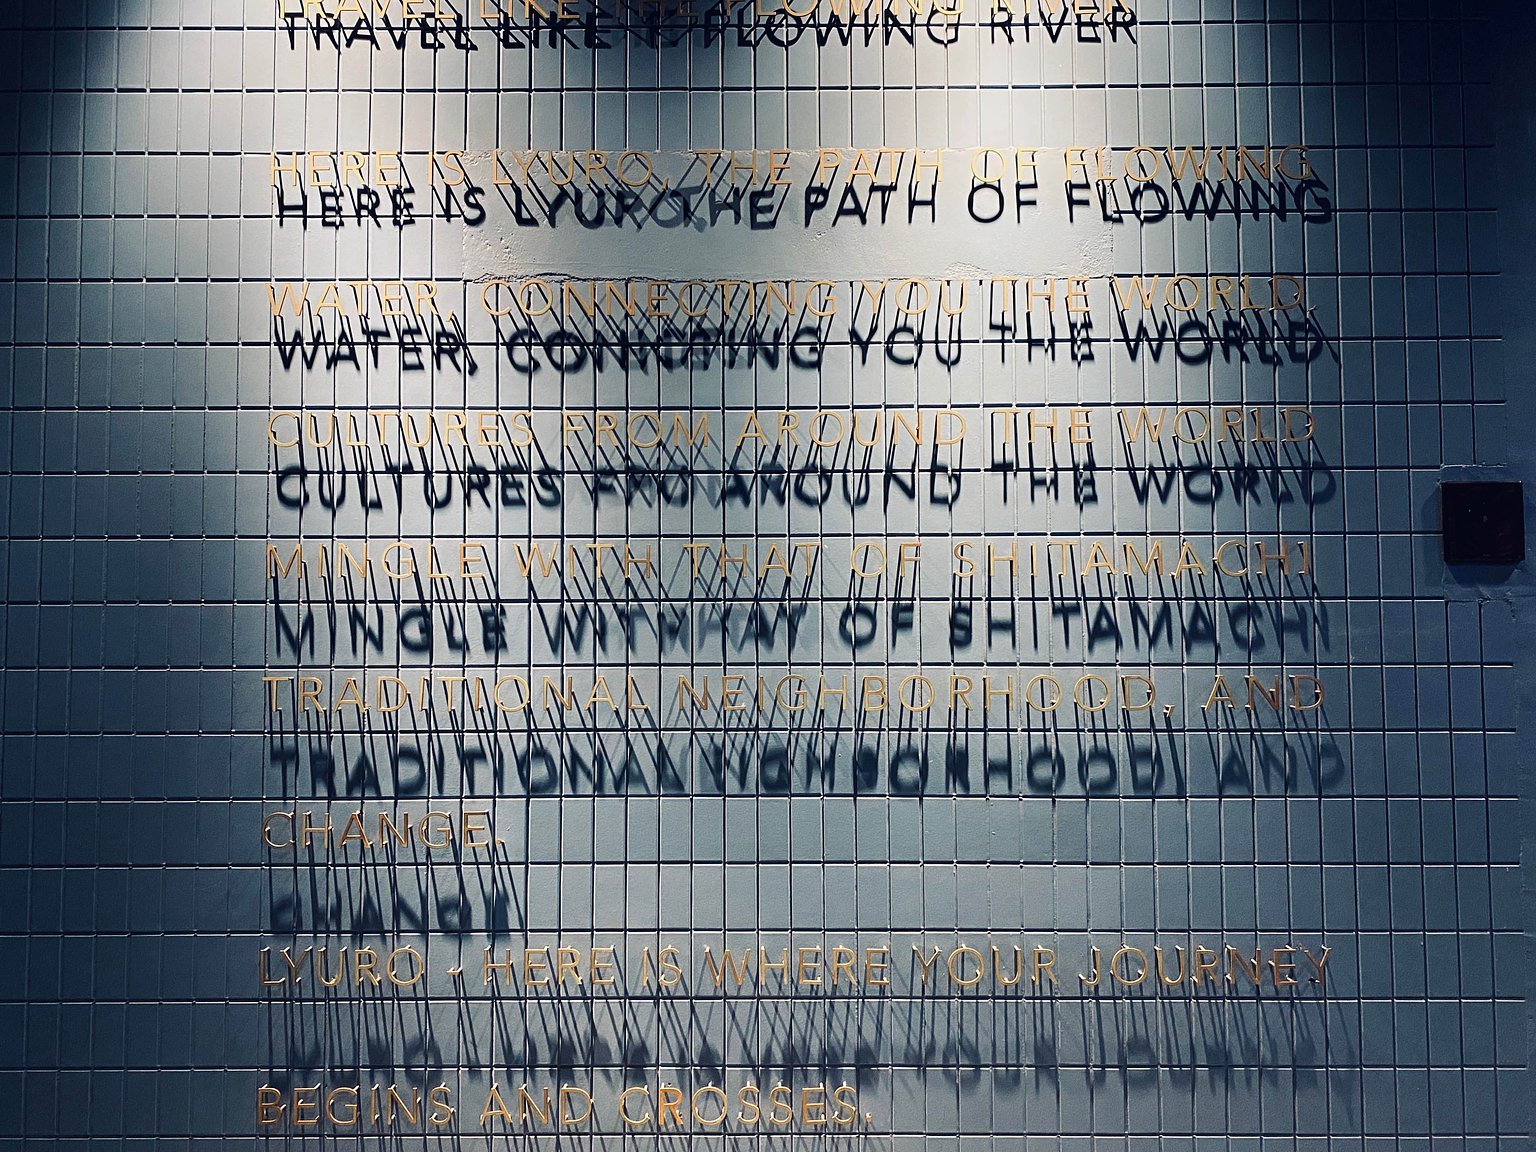 TRAVEL LIKE THE FLOWING RIVER
HERE IS LYURO, THE PATH OF FLOWING
WATER, CONNECTING YOU THE WORLD
CULTURES FROM AROUND THE WORLD
MINGLE WITH THAT OF SHITAMACHI
TRADITIONAL NEIGHBORHOOD, AND
CHANGE.
LYURO - HERE IS WHERE YOUR JOURNEY
BEGINS AND CROSSES.